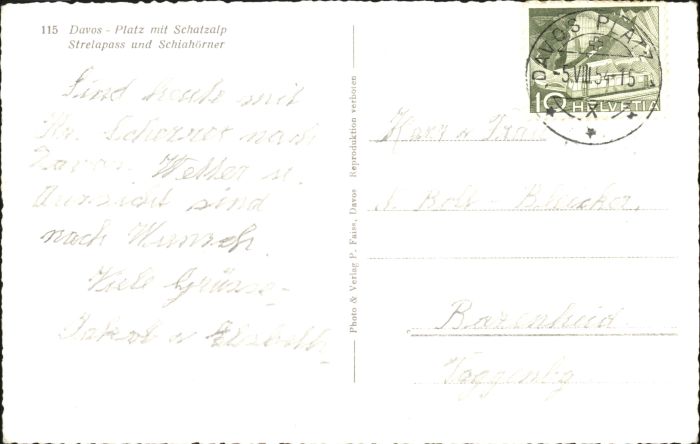 115 Davos - Platz mit Schatzalp
Strelapass und Schiahörner
Sind heute mit
Hr. Scherrer nach
Davos. Wetter u.
Aussicht sind
nach Wunsch.
Viele Grüsse
Jakob u Elisabeth
Photo & Verlag P. Faiss, Davos Reproduktion verboten
DAVOS PLATZ
-5.VIII.54-15
10 HELVETIA
Herr u Frau
N. Bolt -
Bazenheid
Toggenbg